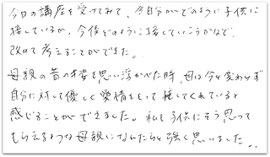 今日の講座を受けてみて、今自分がどのように子供に
接しているか、今後どのように接していこうかなど、
改めて考えることができました。
母親の昔の姿を思い浮かべた時、母は今も変わらず
自分に対して優しく愛情をもって接してくれていると
感じることができました。私も子供にそう思って
もらえるような母親になれたらと強く思いました。